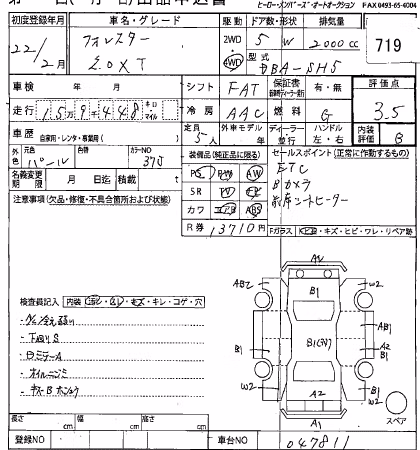 ヒーロー・メンバーズ・オートオークション FAX 0493-65-4004
初度登録年月 車名・グレード 駆動 ドア数・形状 排気量
22/2月 フォレスター 2WD 4WD 5 W 2000cc 719
2.0XT 型式 DBA-SH5
車検 年 月 シフト FAT 保証書 有・無 評価点
走行 159448 キロ・マイル 冷房 AAC 燃料 G 3.5
車歴 自家用・レンタ・事業用( ) 定員 5人 外車モデル 年 ディーラー ハンドル 左・右 内装評価 B
外色 元色 パール 色替 カラーNO 37J 装備品(純正品に限る) セールスポイント(正常に作動するもの)
名義変更期限 月 日迄 積載 t PS PW AW ETC
注意事項(欠品・修復・不具合箇所および状態) SR ナビ 革 Bカメラ
カワ エアB ABS 前席シートヒーター
R券 13710円 Fガラス・キズ・ヒビ・ワレ・リペア跡
検査員記入 内装 キレ・コゲ・穴
下廻りS
オイルニジミ
A1
AB2 B1 W2
AB1
B1 A2
W2 W2
A2
A1
スペア
長さ cm 幅 cm 高さ cm
登録NO 車台NO 047811